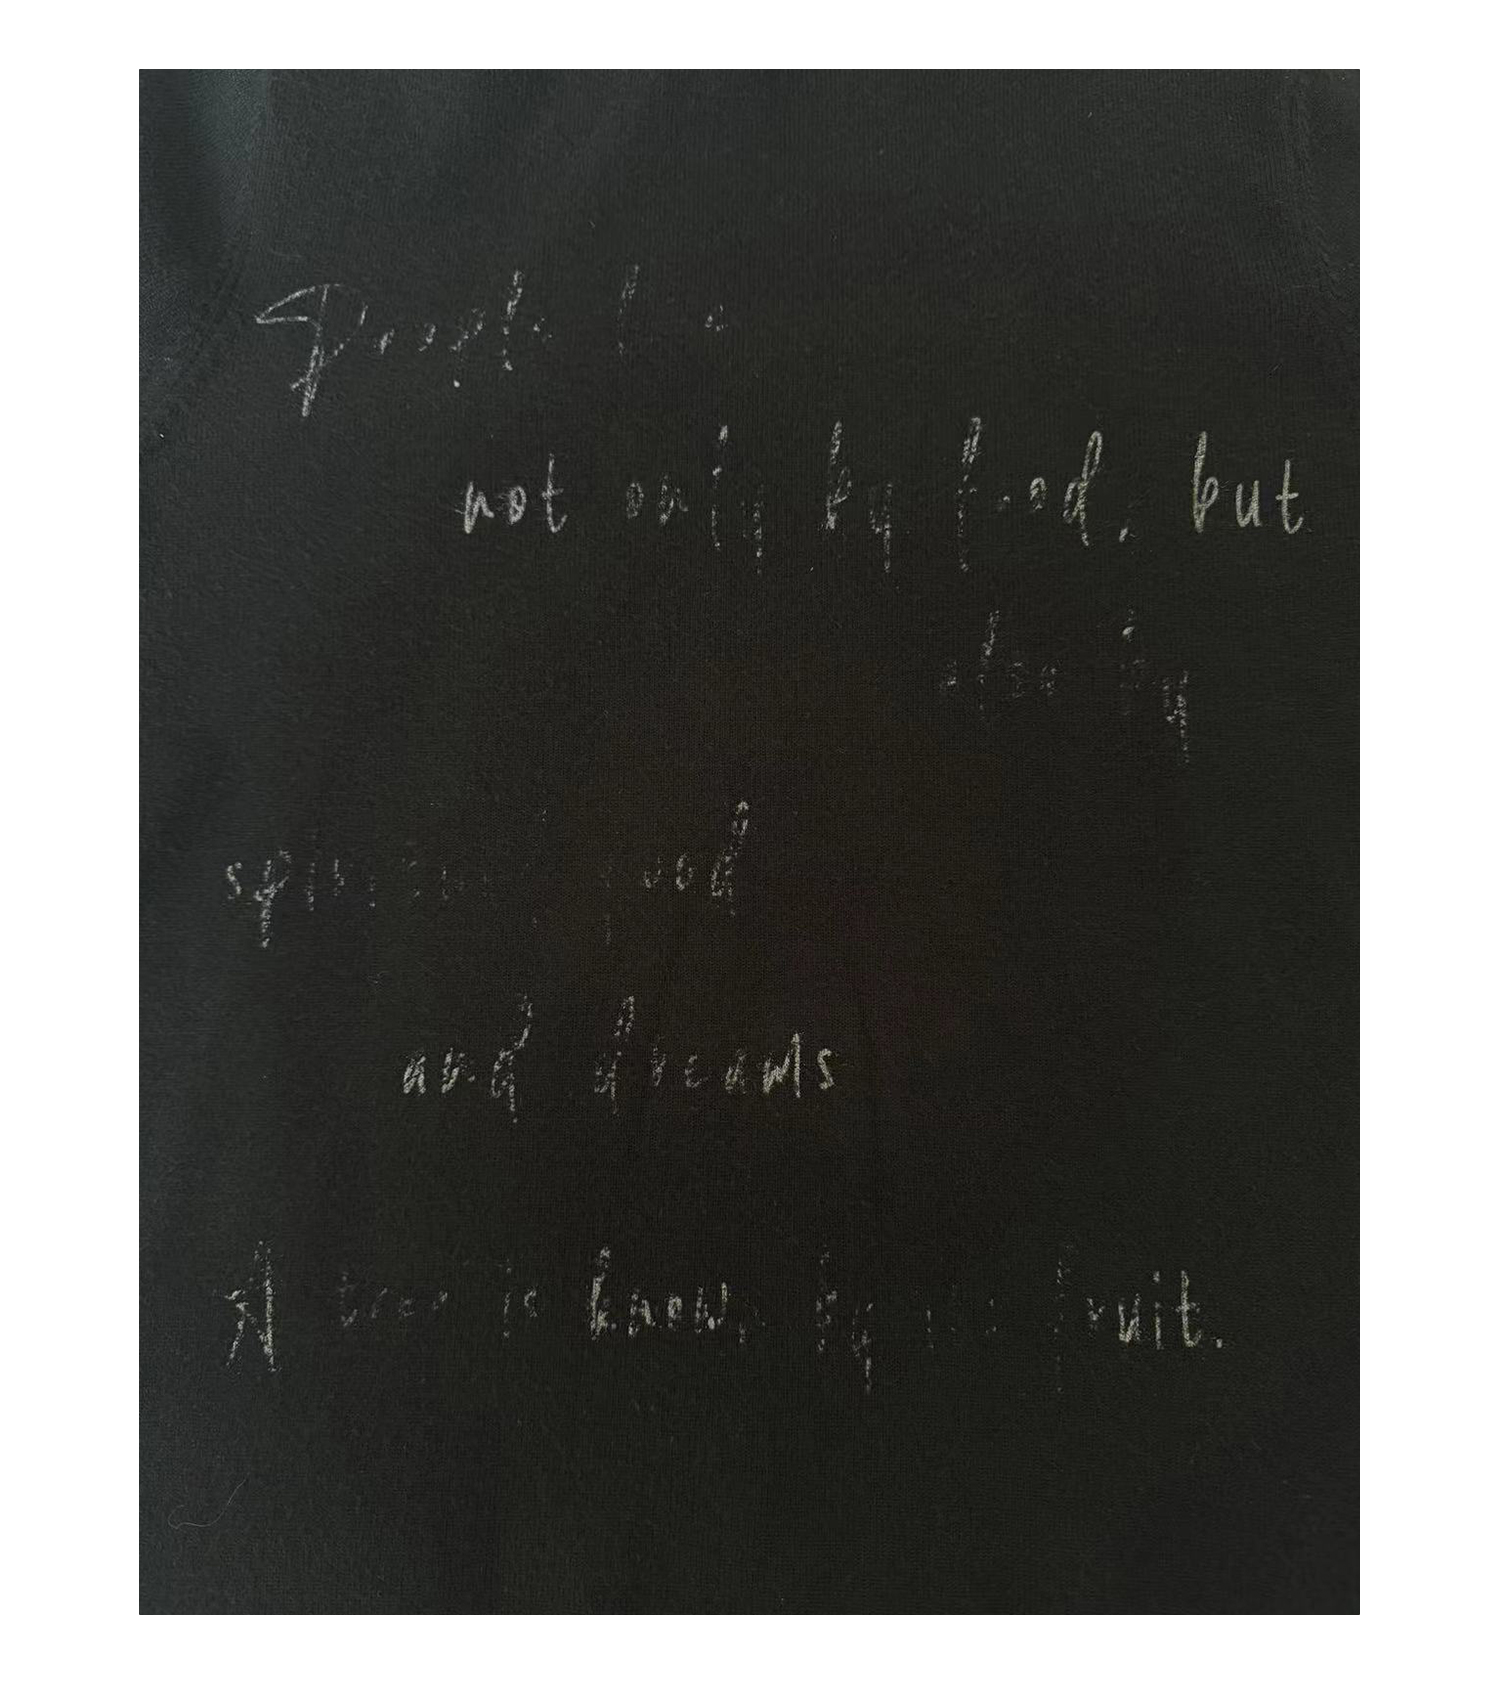 People
not only by food, but
also by
food
and dreams
A tree is known by its fruit.